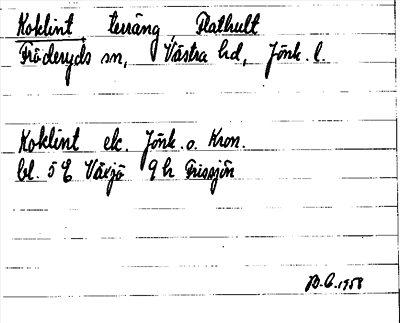 Koklint, terräng, Flathult
Fröderyds sn, Västra hd, Jönk. l.
Koklint ek. Jönk. o. Kron.
bl. 5 E Växjö 9 h Frissjön
1958